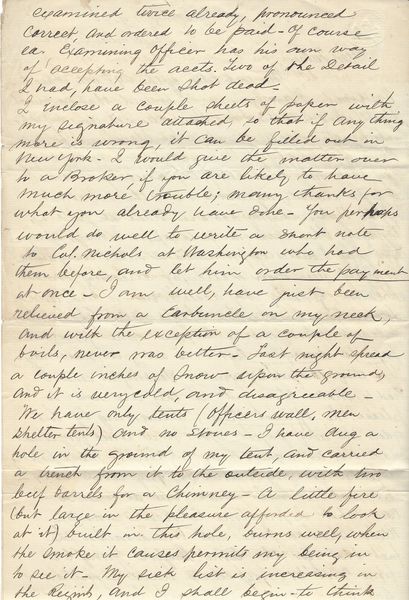 examined twice already, pronounced
correct, and ordered to be paid - Of course
ea. Examining Officer has his own way
of accepting the accts. Two of the Detail
I had, have been shot dead.
I enclose a couple sheets of paper with
my signature attached, so that if any thing
more is wrong, it can be filled out in
New York - I would give the matter over
to a Broker, if you are likely to have
much more trouble; many thanks for
what you already have done - You perhaps
would do well to write a short note
to Col. Nichols at Washington who had
them before, and let him order the payment
at once - I am well, have just been
relieved from a Carbuncle on my neck,
and with the exception of a couple of
boils, never was better - Last night spread
a couple inches of Snow upon the ground,
and it is very cold, and disagreeable -
We have only tents (officers wall, men
shelter tents) and no stoves - I have dug a
hole in the ground of my tent, and carried
a trench from it to the outside, with two
beef barrels for a Chimney - A little fire
(but large in the pleasure afforded to look
at it) built in this hole, burns well, when
the smoke it causes permits my being in
to see it - My sick list is increasing in
the Regint, and I shall begin to think